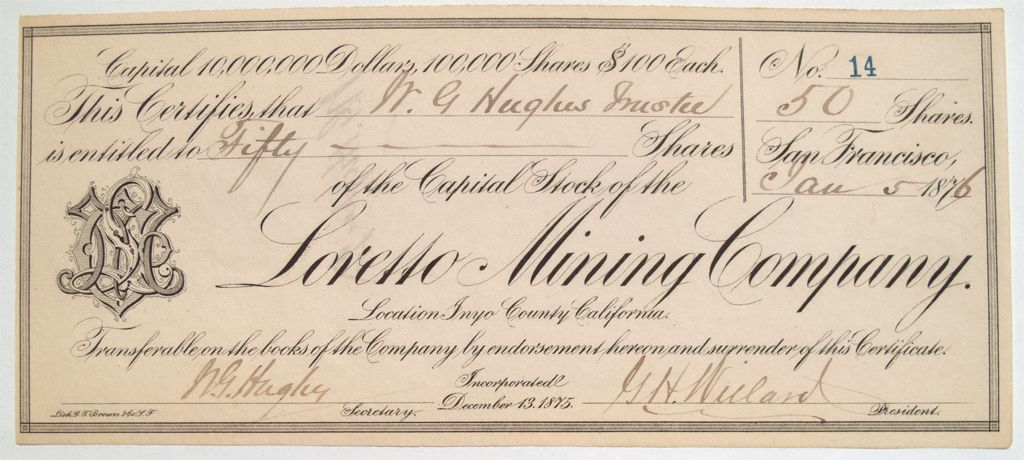 Capital 10,000,000 Dollars, 100,000 Shares $100 Each.
No. 14
This Certifies, that W. G Hughes Trustee
50 Shares.
is entitled to Fifty Shares
San Francisco,
Jan 5 1876
of the Capital Stock of the
Loretto Mining Company.
Location Inyo County California.
Transferable on the books of the Company, by endorsement hereon and surrender of this Certificate.
W.G. Hughes
Secretary.
Incorporated
December 13, 1875.
G. H. Willard
President.
Lith. G. T. Brown & Co. S. F.